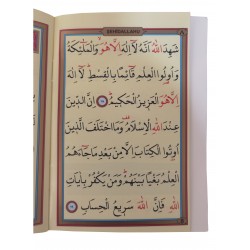 ŞEHİDALLAHÜ
شَهِدَ اللّٰهُ اَنَّهُ لَٓا اِلٰهَ اِلَّا هُوَ وَالْمَلٰٓئِكَةُ
وَاُو۬لُوا الْعِلْمِ قَٓائِمًا بِالْقِسْطِ لَٓا اِلٰهَ
اِلَّا هُوَ الْعَز۪يزُ الْحَك۪يمُ ﴿١٨﴾ اِنَّ الدّ۪ينَ
عِنْدَ اللّٰهِ الْاِسْلَامُ وَمَا اخْتَلَفَ الَّذ۪ينَ
اُو۫تُوا الْكِتَابَ اِلَّا مِنْ بَعْدِ مَا جَٓاءَهُمُ
الْعِلْمُ بَغْيًا بَيْنَهُمْ وَمَنْ يَكْفُرْ بِاٰيَاتِ
اللّٰهِ فَاِنَّ اللّٰهَ سَر۪يعُ الْحِسَابِ ﴿١٩﴾